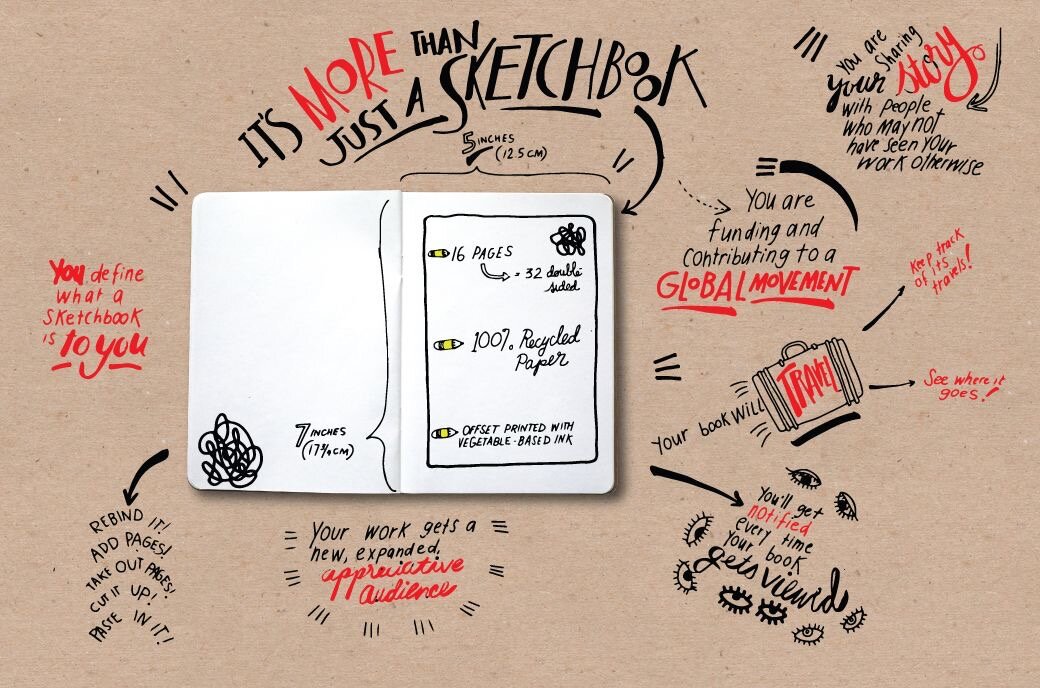 IT'S MORE THAN
JUST A SKETCHBOOK
You are
Sharing
your story.
with people
who may not
have seen your
work otherwise
5 INCHES
(12.5 CM)
You are
funding and
contributing to a
GLOBAL MOVEMENT
16 PAGES
= 32 double
sided
100% Recycled
Paper
OFFSET PRINTED WITH
VEGETABLE-BASED INK
7 INCHES
(17¾ CM)
You define
what a
sketchbook
is to you
Keep track
of its
travels!
Your book will
TRAVEL
See where it
goes!
REBIND IT!
ADD PAGES!
TAKE OUT PAGES!
CUT IT UP!
PASTE IN IT!
Your work gets a
new, expanded,
appreciative
audience
You'll get
notified
every time
your book
gets viewed